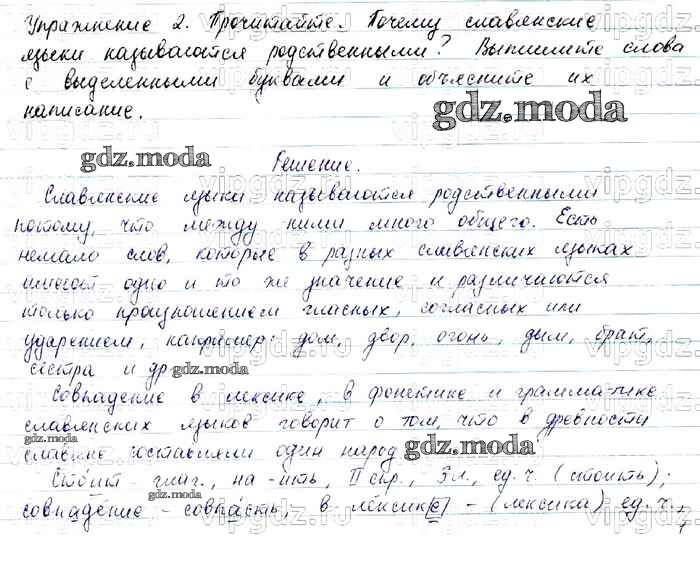 Упражнение 2. Прочитайте. Почему славянские
языки называются родственными? Выпишите слова
с выделенными буквами и объясните их
написание.
gdz.moda
gdz.moda
Решение.
Славянские языки называются родственными
потому, что между ними много общего. Есть
немало слов, которые в разных славянских языках
имеют одно и то же значение и различаются
только произношением гласных, согласных или
ударением, например: дом, двор, огонь, дым, брат,
сестра и др.
gdz.moda
Совпадение в лексике, в фонетике и грамматике
славянских языков говорит о том, что в древности
gdz.moda
славяне составляли один народ
gdz.moda
Стоит - глаг., на -ить, II спр., 3 л., ед. ч. (стоить);
gdz.moda
совпадение - совпасть; в лексик[е] - (лексика) ед. ч.,